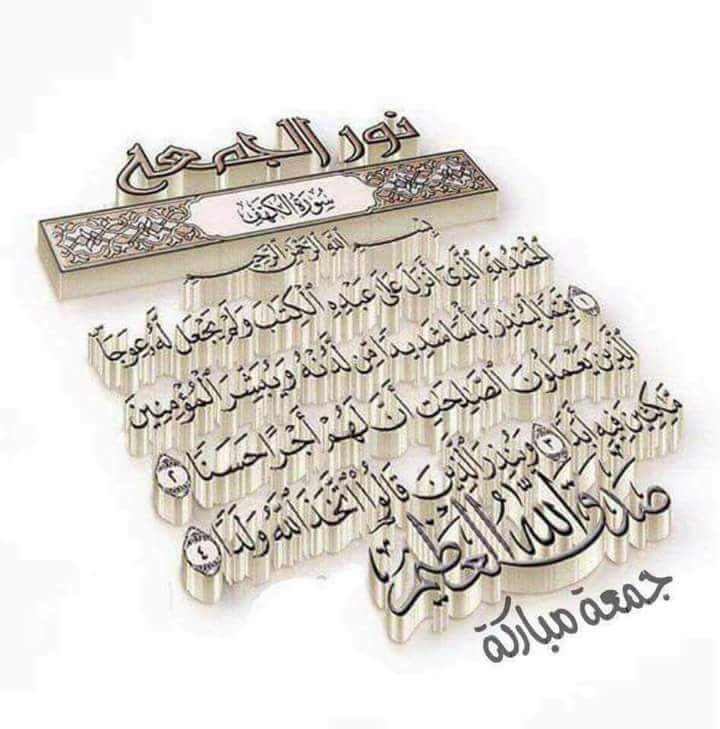 نور الجمعه
سُورَةُ الكَهْفِ
بِسْمِ اللَّهِ الرَّحْمَٰنِ الرَّحِيمِ
ٱلْحَمْدُ لِلَّهِ ٱلَّذِىٓ أَنزَلَ عَلَىٰ عَبْدِهِ ٱلْكِتَٰبَ وَلَمْ يَجْعَل لَّهُۥ عِوَجَا
١ قَيِّمًا لِّيُنذِرَ بَأْسًا شَدِيدًا مِّن لَّدُنْهُ وَيُبَشِّرَ ٱلْمُؤْمِنِينَ
ٱلَّذِينَ يَعْمَلُونَ ٱلصَّٰلِحَٰتِ أَنَّ لَهُمْ أَجْرًا حَسَنًا ٢
مَّٰكِثِينَ فِيهِ أَبَدًا ٣ وَيُنذِرَ ٱلَّذِينَ قَالُوا۟ ٱتَّخَذَ ٱللَّهُ وَلَدًا ٤
صَدَقَ اللَّهُ العَظِيمُ
جمعة مباركة